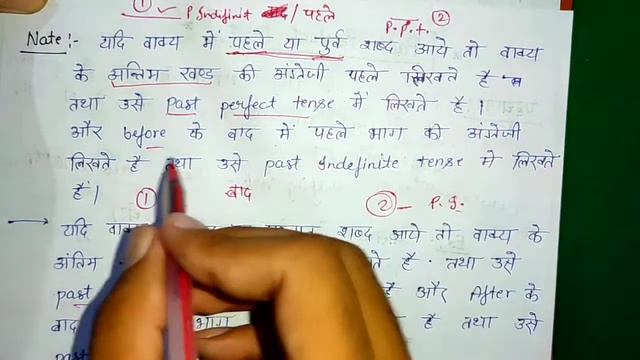 ① ✓ P. Indefinit / पहले
P.P.t. ②
Note :- यदि वाक्य में पहले या पुर्व शब्द आये तो वाक्य
के अन्तिम खण्ड की अंग्रेजी पहले लिखते है
तथा उसे Past perfect tense में लिखते है।
और before के बाद में पहले भाग की अंग्रेजी
लिखते है तथा उसे past Indefinite tense मे लिखते
हैं।
① बाद ② - P. I.
→ यदि शब्द आये तो वाक्य के
अंतिम है . तथा उसे
past है और After के
बाद भाग है तथा उसे